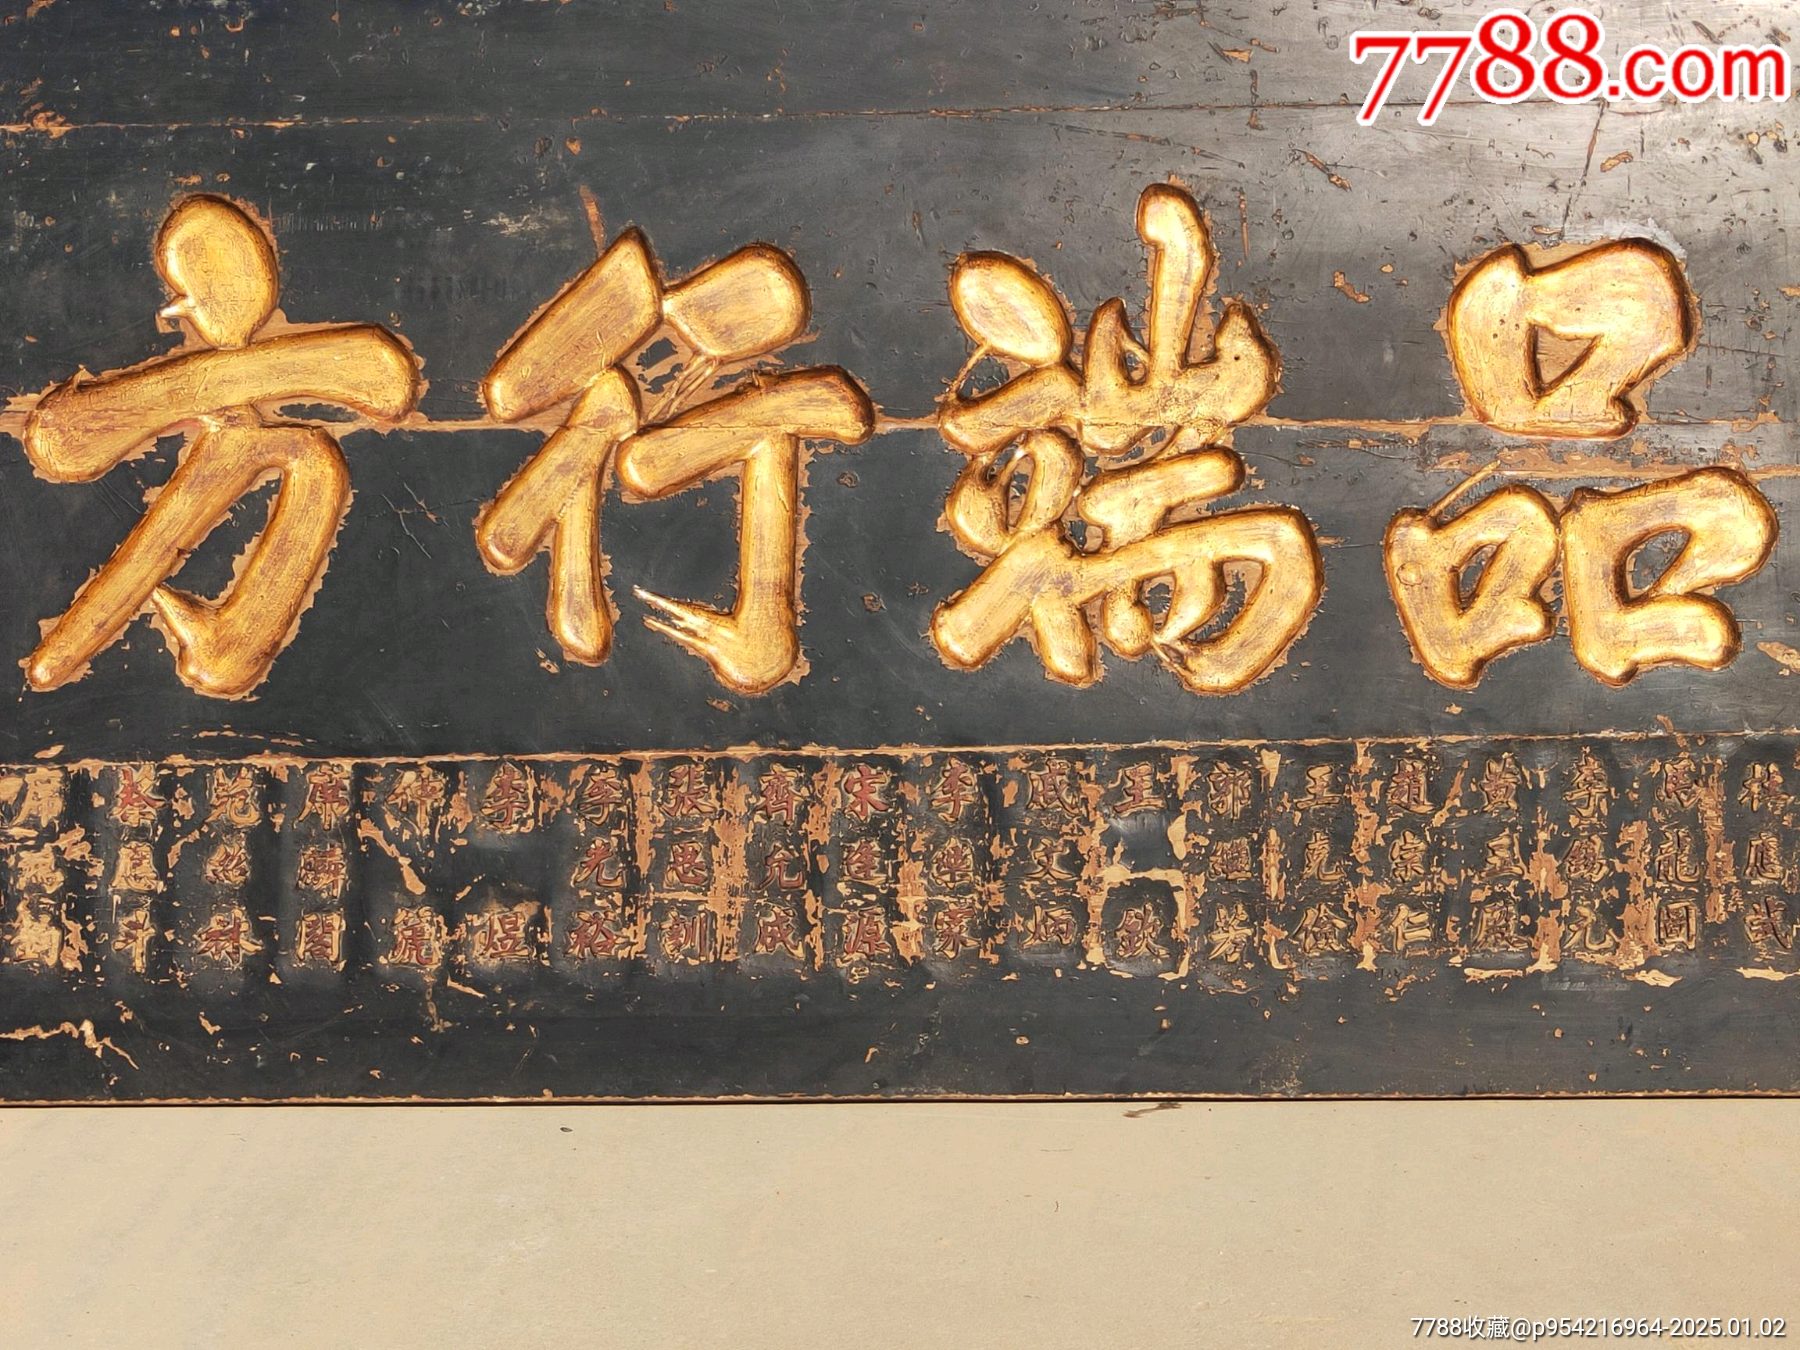 7788.com
品端行方
林應武
馬龍圖
李錫九
黃三殿
趙宗仁
王克儉
郭繼芳
王欽
成文炳
李樂家
宋逢源
齊允成
張思訓
李光裕
李煜
席麟閣
范繼林
7788收藏@p954216964-2025.01.02